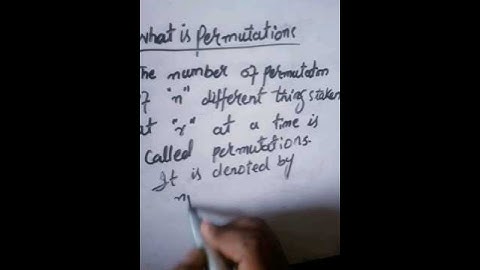 What is Permutations
The number of permutation
of "n" different things taken
at "r" at a time is
called permutations.
It is denoted by
n